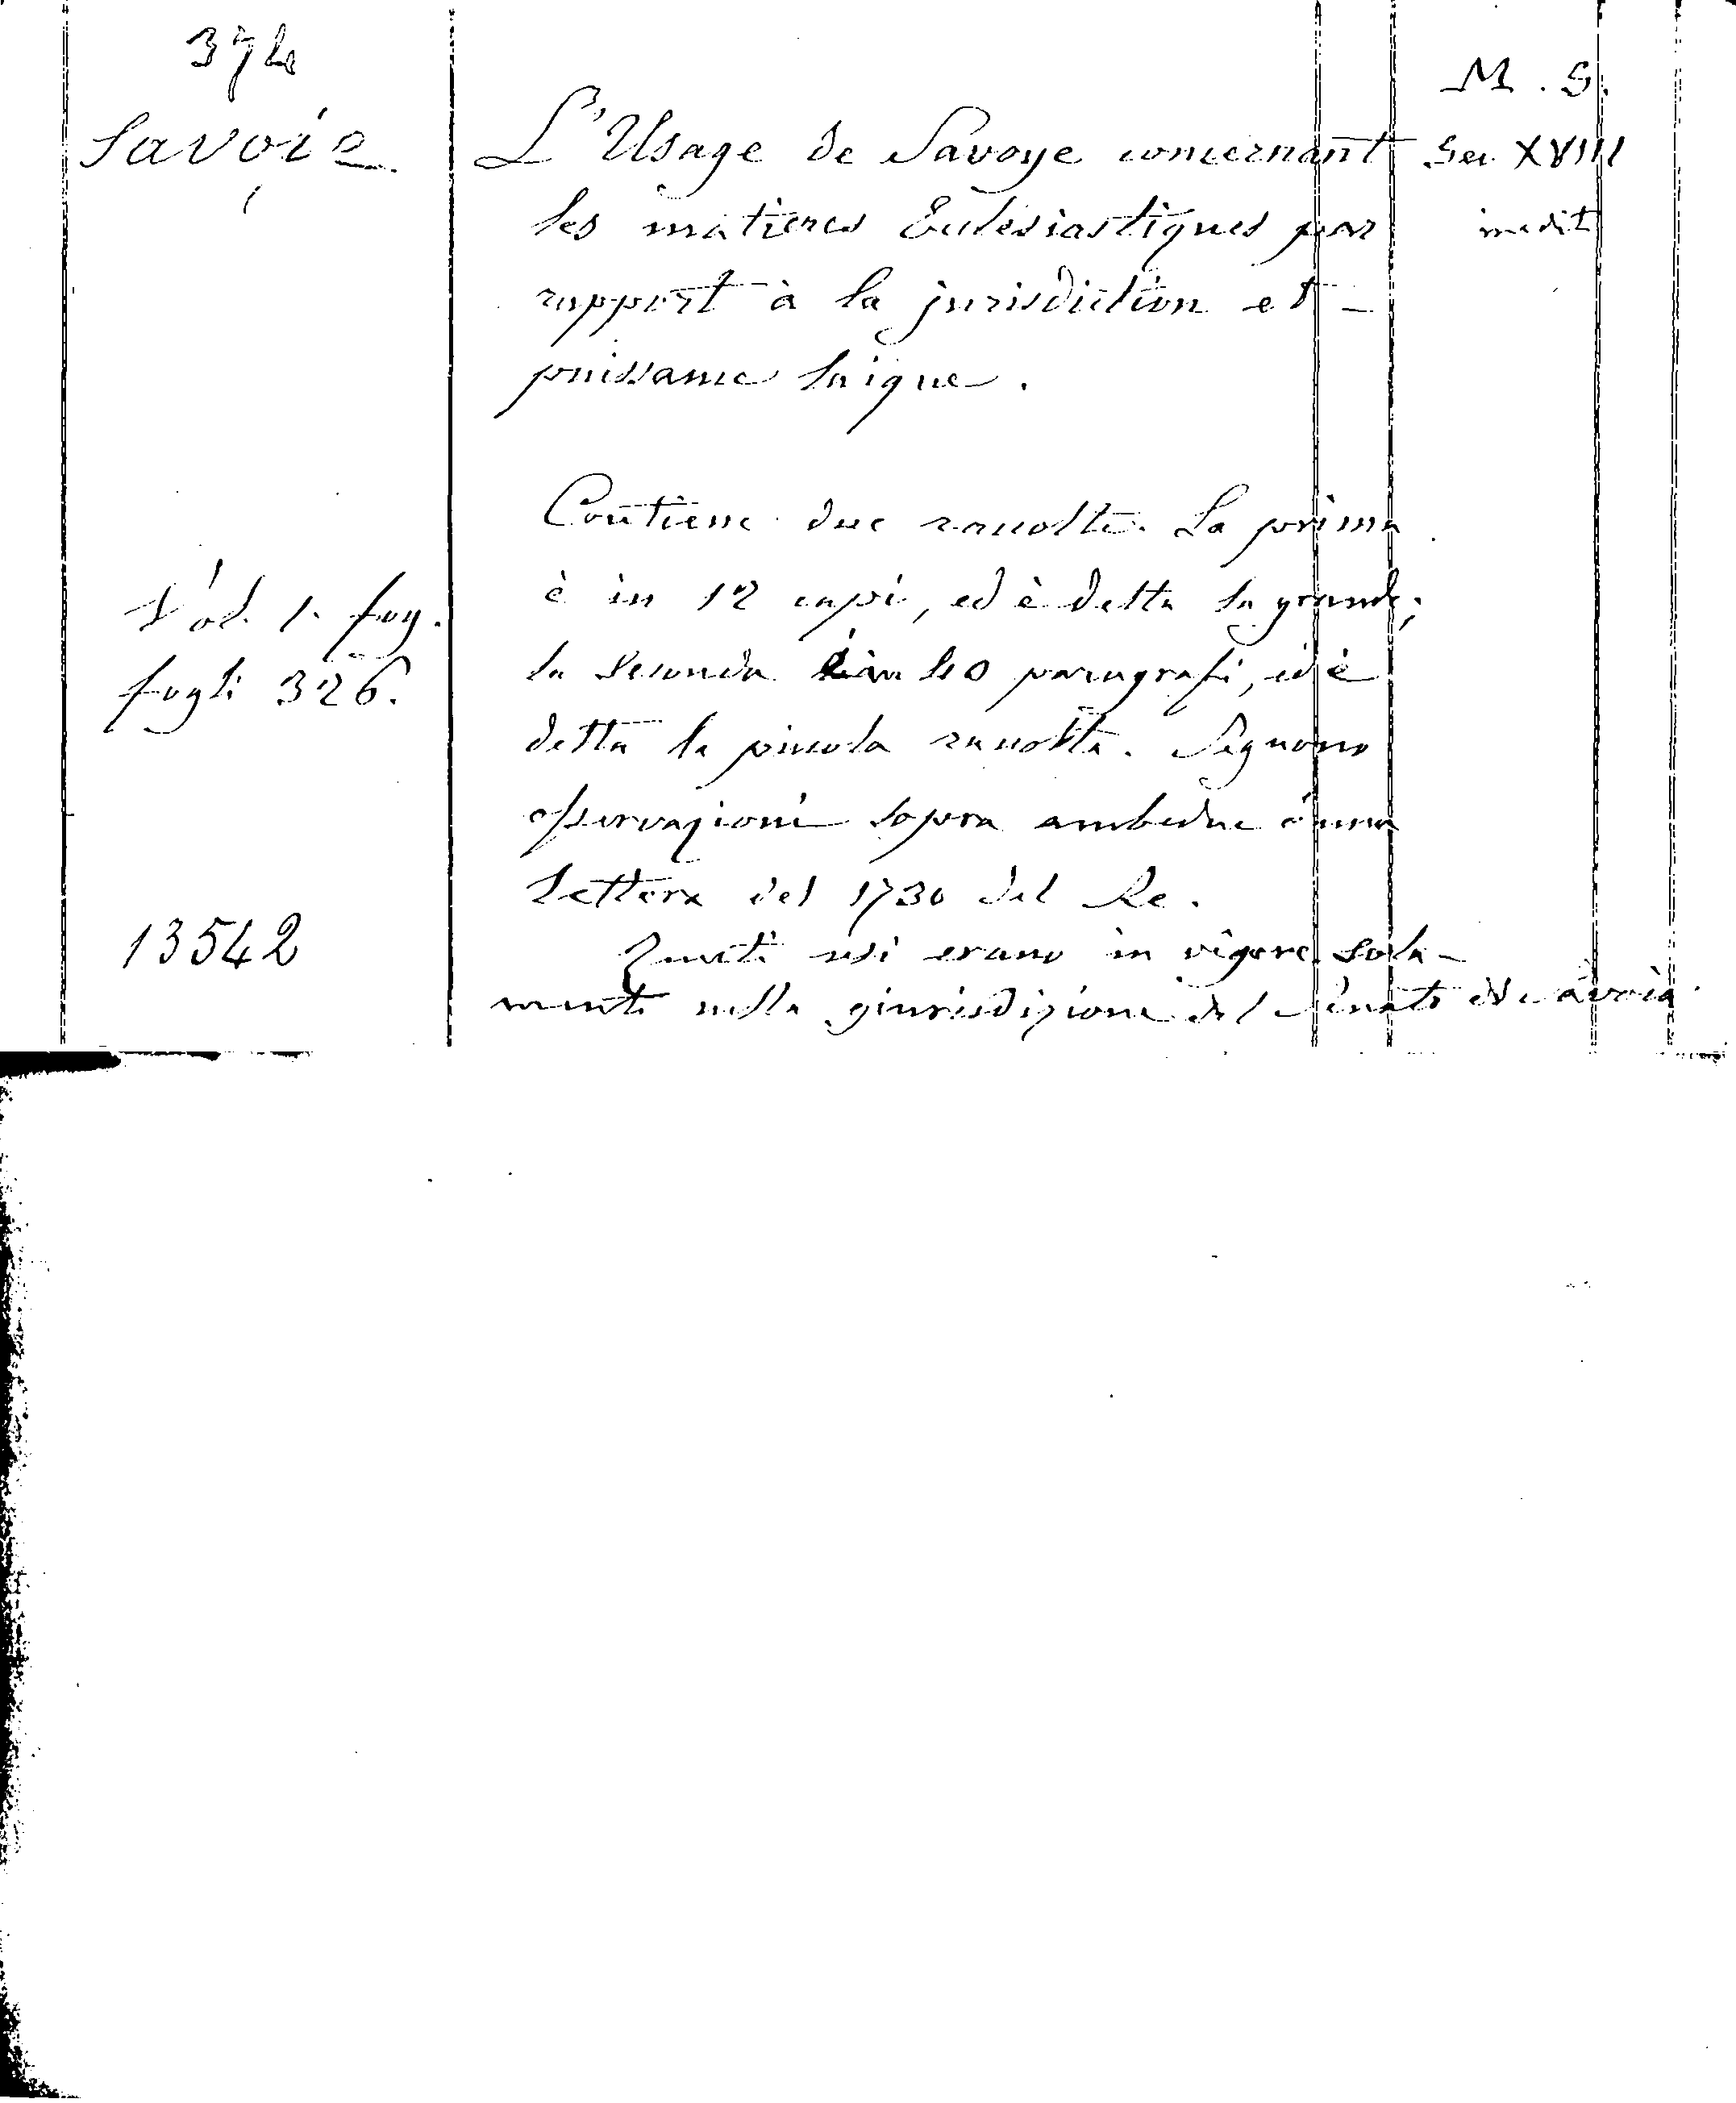 374
Savoie
M. S.
L'Usage de Savoye concernant
Sec XVIII
les matieres Ecclesiastiques par
inedit
rapport à la jurisdiction et
puissance laique.
Contiene due raccolte. La prima
è in 12 capi, ed è detta la grande;
Vol. 1. fog.
la seconda è in 40 paragrafi, ed è
fogli 326.
detta la piccola raccolta. Seguono
osservazioni sopra ambedue è una
lettera del 1730 del Re.
13542
Questi usi erano in vigore sola-
mente nella giurisdizione del Senato di Savoia.